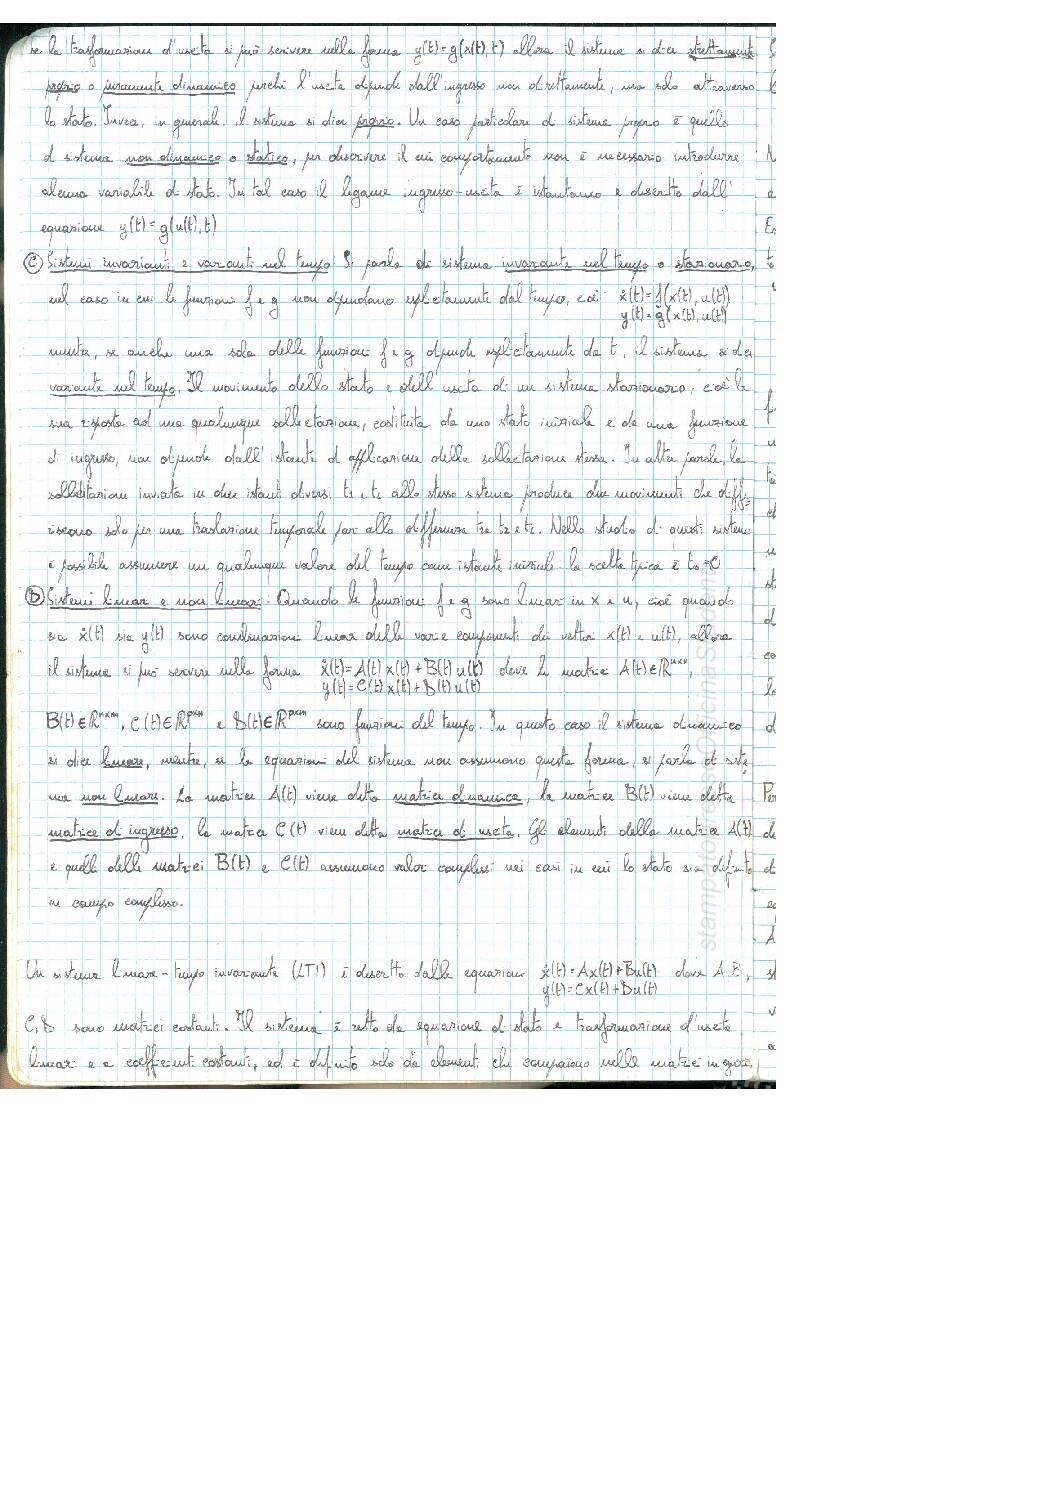 se la trasformazione d'uscita si può scrivere nella forma y(t)=g(x(t),t) allora il sistema si dice strettamente
proprio o puramente dinamico perché l'uscita dipende dall'ingresso non direttamente, ma solo attraverso
lo stato. Invece, in generale, il sistema si dice proprio. Un caso particolare di sistema proprio è quello
di sistema non dinamico o statico, per descrivere il cui comportamento non è necessario introdurre
alcuna variabile di stato. In tal caso il legame ingresso-uscita è istantaneo e descritto dall'
equazione y(t)=g(u(t),t)
(C) Sistemi invarianti e varianti nel tempo Si parla di sistema invariante nel tempo o stazionario,
nel caso in cui le funzioni f e g non dipendano esplicitamente dal tempo, cioè ẋ(t)=f(x(t),u(t))
y(t)=g(x(t),u(t))
mentre, se anche una sola delle funzioni f e g dipende esplicitamente da t, il sistema si dice
variante nel tempo. Il movimento dello stato e dell'uscita di un sistema stazionario, cioè la
sua risposta ad una qualunque sollecitazione, costituita da uno stato iniziale e da una funzione
di ingresso, non dipende dall'istante di applicazione della sollecitazione stessa. In altre parole, la
sollecitazione inviata in due istanti diversi t1 e t2 allo stesso sistema produce due movimenti che diffe-
riscono solo per una traslazione temporale pari alla differenza tra t2 e t1. Nello studio di questi sistemi
è possibile assumere un qualunque valore del tempo come istante iniziale: la scelta tipica è t0=0
(D) Sistemi lineari e non lineari: Quando le funzioni f e g sono lineari in x e u, cioè quando
sia ẋ(t) sia y(t) sono combinazioni lineari delle varie componenti dei vettori x(t) e u(t), allora
il sistema si può scrivere nella forma ẋ(t)=A(t)x(t)+B(t)u(t) dove le matrici A(t)∈ℝⁿˣⁿ,
y(t)=C(t)x(t)+D(t)u(t)
B(t)∈ℝⁿˣᵐ, C(t)∈ℝᵖˣⁿ e D(t)∈ℝᵖˣᵐ sono funzioni del tempo. In questo caso il sistema dinamico
si dice lineare, mentre, se le equazioni del sistema non assumono questa forma, si parla di siste
ma non lineare. La matrice A(t) viene detta matrice dinamica, la matrice B(t) viene detta
matrice di ingresso, la matrice C(t) viene detta matrice di uscita. Gli elementi della matrice A(t)
e quelli delle matrici B(t) e C(t) assumono valori complessi nei casi in cui lo stato sia definito
in campo complesso.
Un sistema lineare-tempo invariante (LTI) è descritto dalle equazioni ẋ(t)=Ax(t)+Bu(t) dove A,B,
y(t)=Cx(t)+Du(t)
C,D sono matrici costanti. Il sistema è retto da equazione di stato e trasformazione d'uscita
lineari e a coefficienti costanti, ed è definito solo da elementi che compaiono nelle matrici in